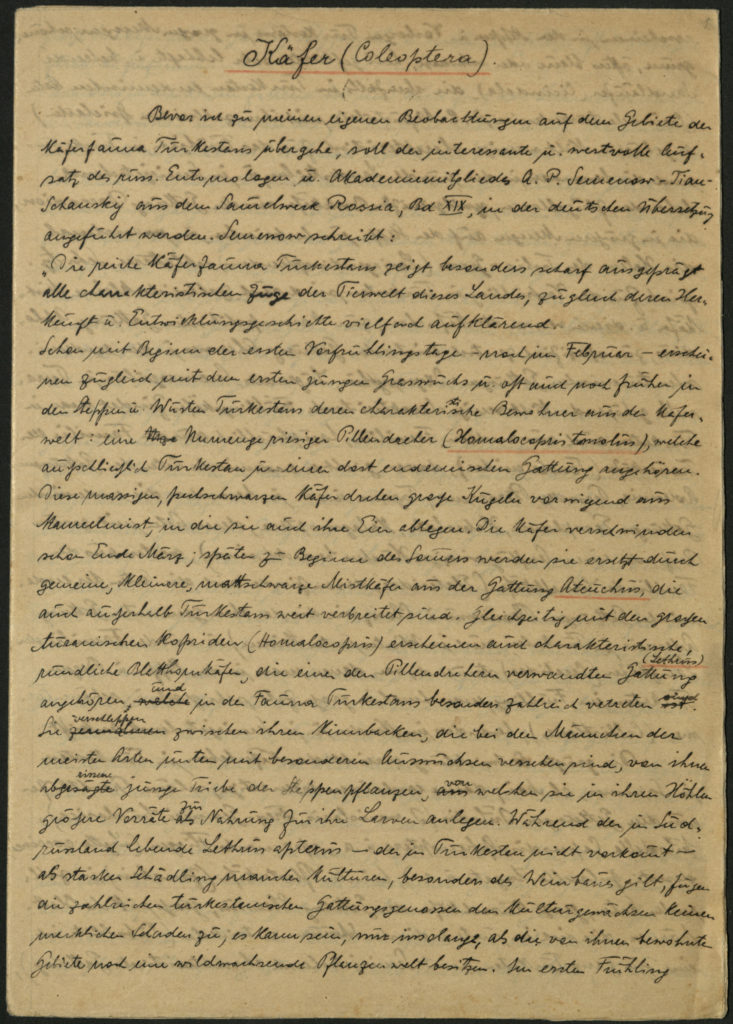 Käfer (Coleoptera).
Bevor ich zu meinen eigenen Beobachtungen auf dem Gebiete der
Käferfauna Turkestans übergehe, soll der interessante u. wertvolle Auf-
satz des russ. Entomologen u. Akademiemitgliedes A. P. Semenow-Tian-
Schanskij aus dem Samelwerk Rossia, Bd XIX, in der deutschen Übersetzung
angeführt werden. Semenow schreibt:
„Die reiche Käferfauna Turkestans zeigt besonders scharf ausgeprägt
alle charakteristischen Züge der Tierwelt dieses Landes, zugleich deren Her-
kunft u. Entwicklungsgeschichte vielfach aufklärend.
Schon mit Beginn der ersten Vorfrühlingstage – noch im Februar – erschei-
nen zugleich mit dem ersten jungen Graswuchs u. oft auch noch früher in
den Steppen u. Wüsten Turkestans deren charakteristische Bewohner aus der Käfer-
welt: eine Unmenge riesiger Pillendreher (Homalocopris tmolus), welche
ausschließlich Turkestan u. einer dort endemischen Gattung angehören.
Diese massigen, pechschwarzen Käfer drehen große Kugeln vorwiegend aus
in die sie auch ihre Eier ablegen. Die Käfer verschwinden
schon Ende März; später zu Beginn des Somers werden sie ersetzt durch
gemeine, kleinere, mattschwarze Mistkäfer aus der Gattung Ateuchus, die
auch außerhalb Turkestans weit verbreitet sind. Gleichzeitig mit den großen
turanischen Kopriden (Homalocopris) erscheinen auch charakteristische,
rundliche die einer den Pillendrehern verwandten Gattung (Lethrus)
angehören, und in der Fauna Turkestans besonders zahlreich vetreten sind.
Sie verschleppen zwischen ihren Kinnbacken, die bei den Männchen der
meisten Arten unten mit besonderen Auswüchsen versehen sind, von ihnen
abgerissene junge Triebe der Steppenpflanzen, von welchen sie in ihren Höhlen
größere Vorräte zur Nahrung für ihre Larven anlegen. Während der in Süd-
russland lebende Lethrus apterus – der in Turkestan nicht vorkomt –
als starken Schädling mancher Kulturen, besonders des Weinbaus gilt, fügen
die zahlreichen turkestanischen Gattungsgenossen den Kulturgewächsen keinen
merklichen Schaden zu, es kann sein, nur insolange, als die von ihnen bewohnte
Gebiete noch eine wildwachsende Pflanzenwelt besitzen. Im ersten Frühling